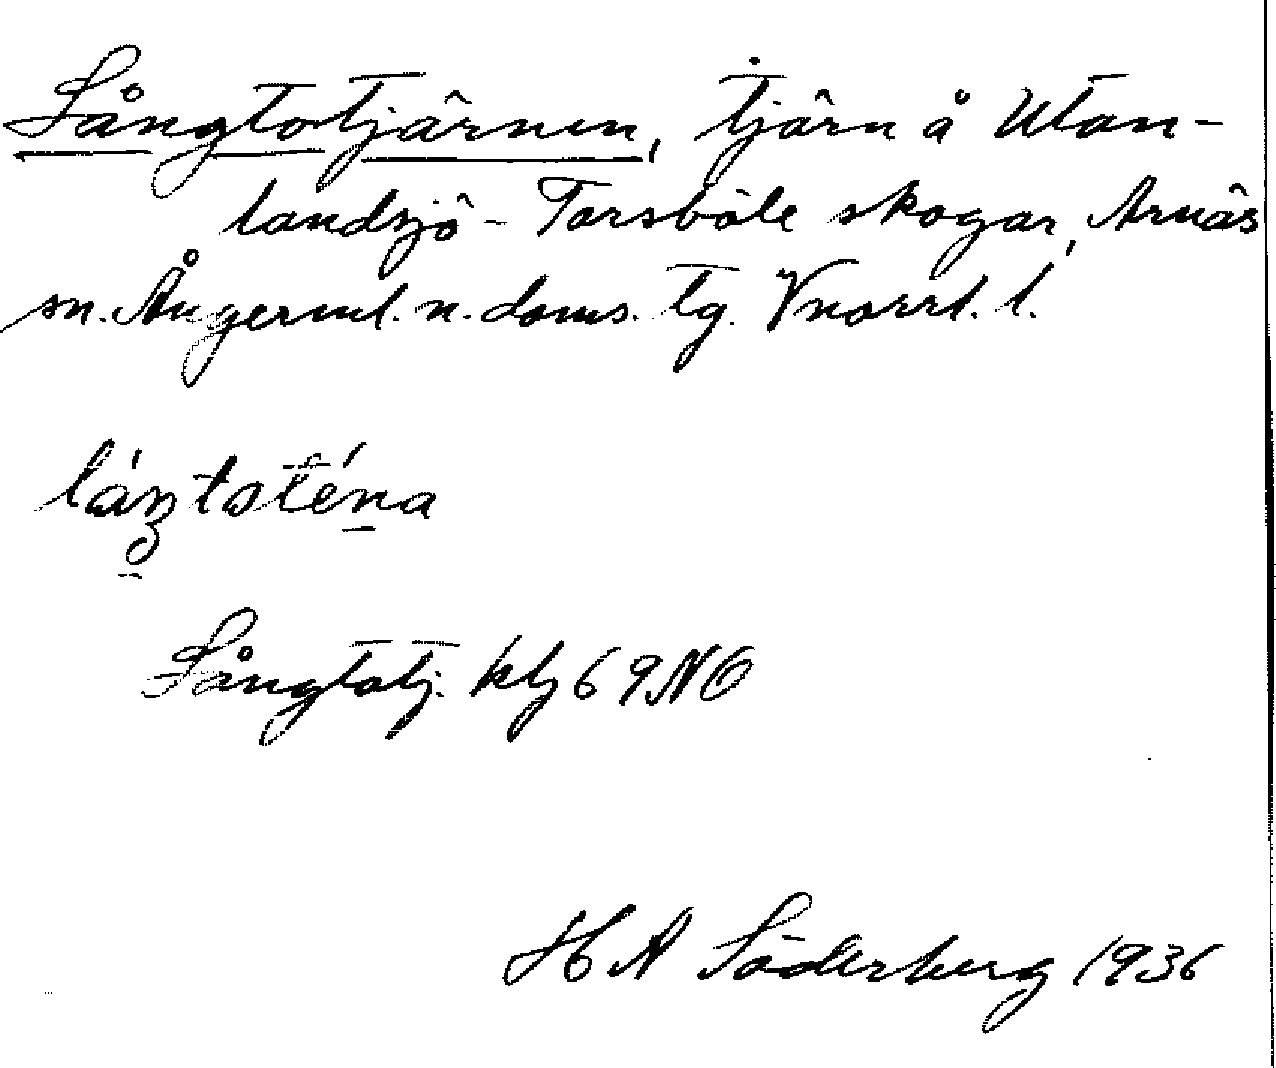 Långtotjärnen, tjärn å Utan-
landsjö - Torsböle skogar, Arnäs
sn. Ångerml. n. doms. tg. Vnorrl. l.
Långtotj. kbj 69NO
H A Söderberg 1936